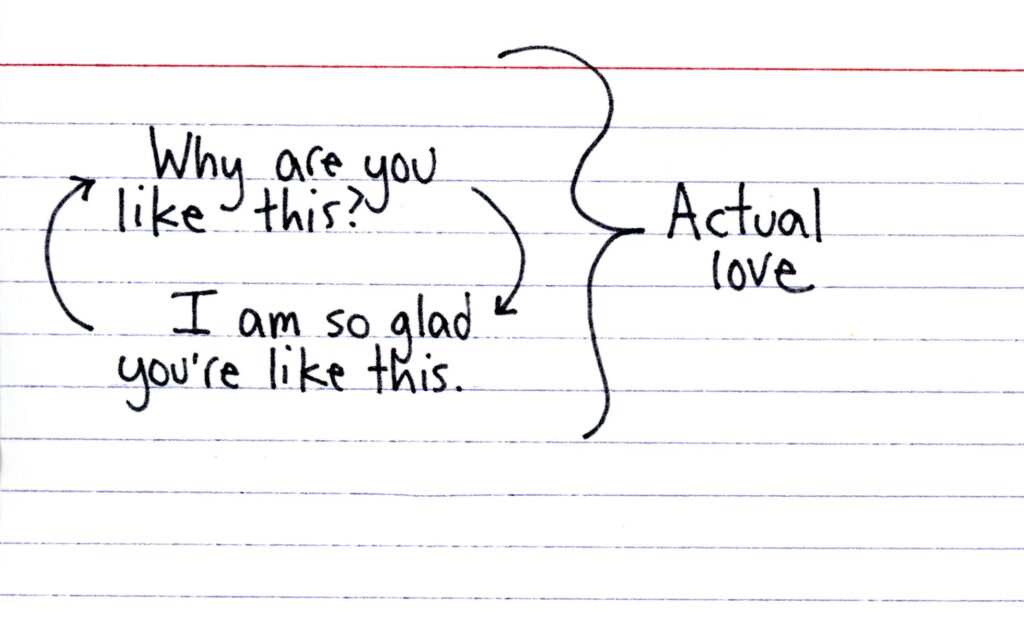 Why are you
like this?
I am so glad
you're like this.
Actual
love